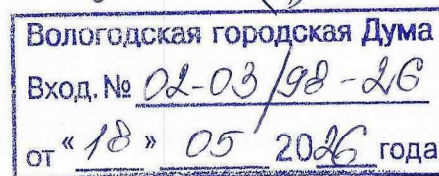 Вологодская городская Дума
Вход. № 02-03/98-26
от "18" 05 2026 года